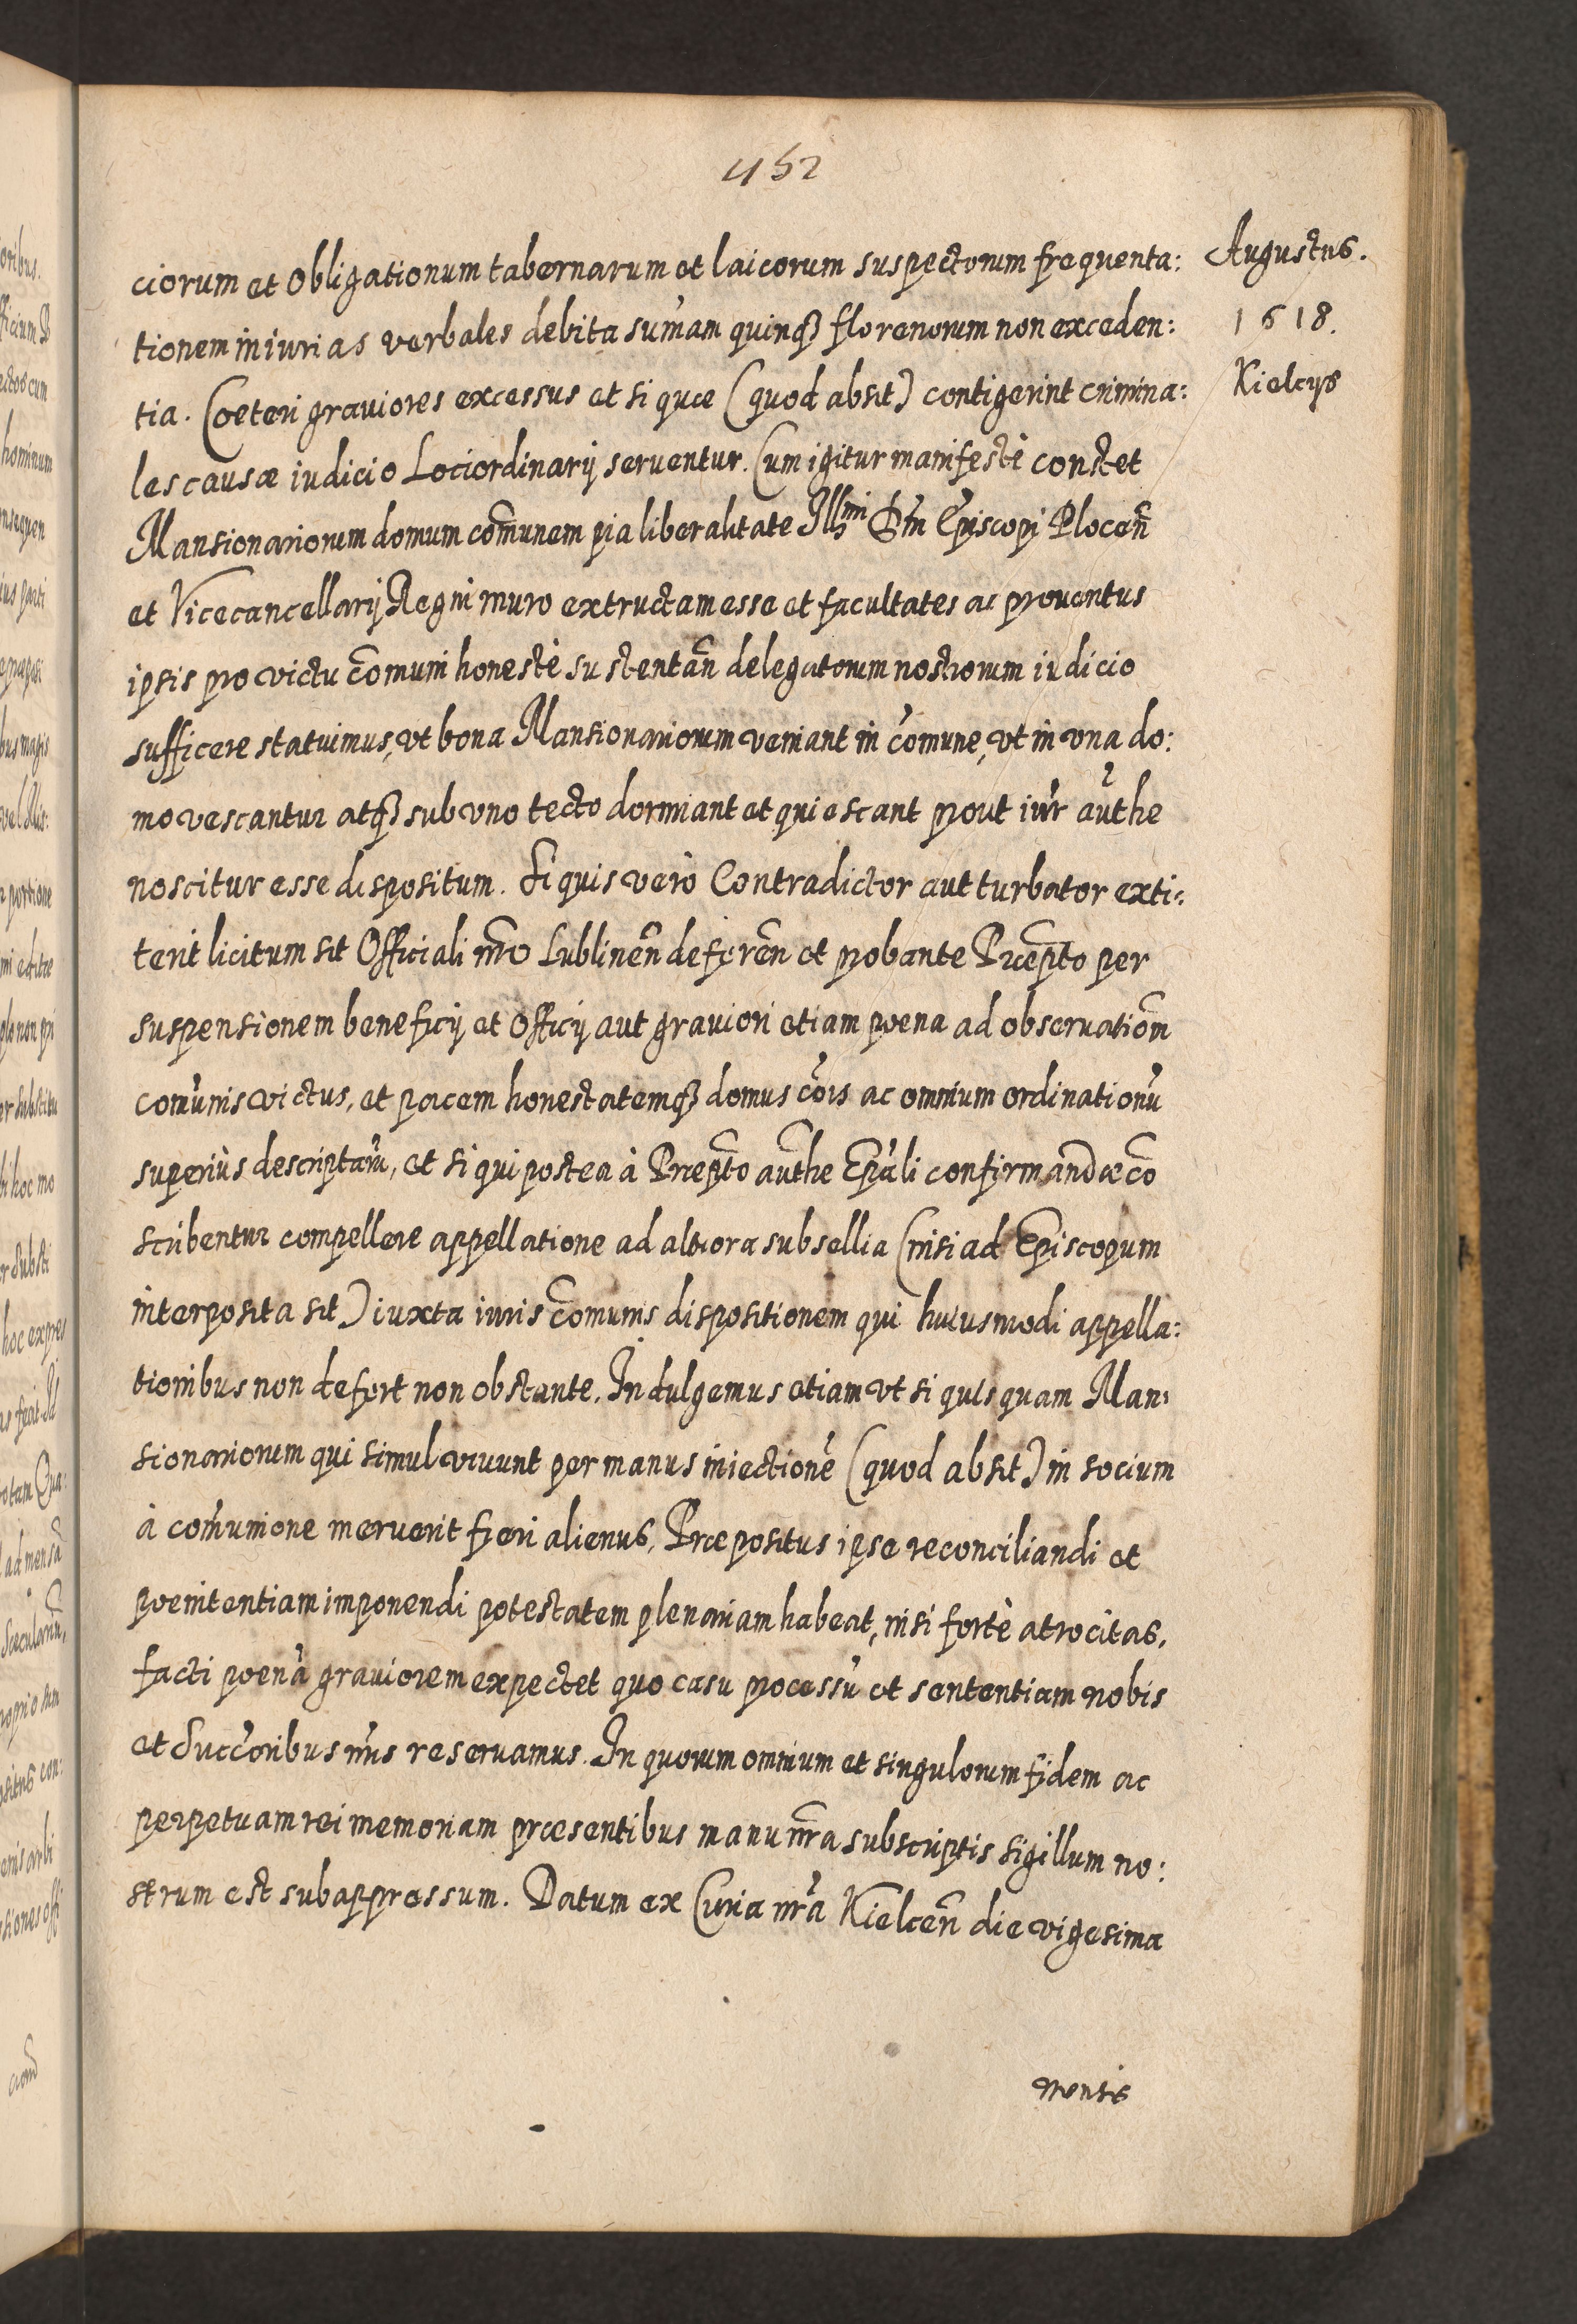 452
Augustus.
1618.
Kielcys
ciorum et obligationum tabernarum et laicorum suspectorum frequenta:
tionem iniurias verbales debita sum̃am quinqȝ florenorum non exceden:
tia. Coeteri grauiores excessus et si quæ (quod absit) contigerint crimina:
les causæ iudicio Lociordinarij seruentur. Cum igitur manifestè constet
Mansionariorum domum com̃unem pia liberalitate Illmi Dm̃ Episcopi Plocen̄
et Vicecancellarij Regni muro extructam esse et facultates ac prouentus
ipsis pro victu com̃uni honestè sustentan̄ delegatorum nostrorum iudicio
sufficere statuimus, vt bona Mansionariorum veniant in com̃une, vt in vna do:
mo vescantur atqȝ sub vno tecto dormiant et quiescant prout iur̃ aũthe
noscitur esse dispositum. Si quis verò Contradictor aut turbator exti:
terit licitum sit Officiali nr̃o Lublinen̄ deferen̄ et probante Præpto per
suspensionem beneficij et officij aut grauiori etiam poena ad obseruatiom̃
com̃unis victus, et pacem honestatemqȝ domus cõis ac omnium ordinationũ
superiùs descriptarũ, et si qui postea à Præpto aũthe Epãli confirmandæ cõ
scribentur compellere appellatione ad altiora subsellia (nisi ad Episcopum
interposita sit) iuxta iuris com̃unis dispositionem qui huiusmodi appella:
tionibus non defert non obstante. Indulgemus etiam vt si quisquam Man:
sionariorum qui simul viuunt per manus iniectionẽ (quod absit) in socium
à com̃unione meruerit fieri alienus, Præpositus ipse reconciliandi et
poenitentiam imponendi potestatem plenariam habeat, nisi fortè atrocitas,
facti poenã grauiorem expectet quo casu processũ et sententiam nobis
et Succ̃oribus nr̃is reseruamus. In quorum omnium et singulorum fidem ac
perpetuam rei memoriam præsentibus manu nr̃a subscriptis sigillum no:
strum est subappressum. Datum ex Curia nr̃a Kielcen̄ die vigesima
mensis